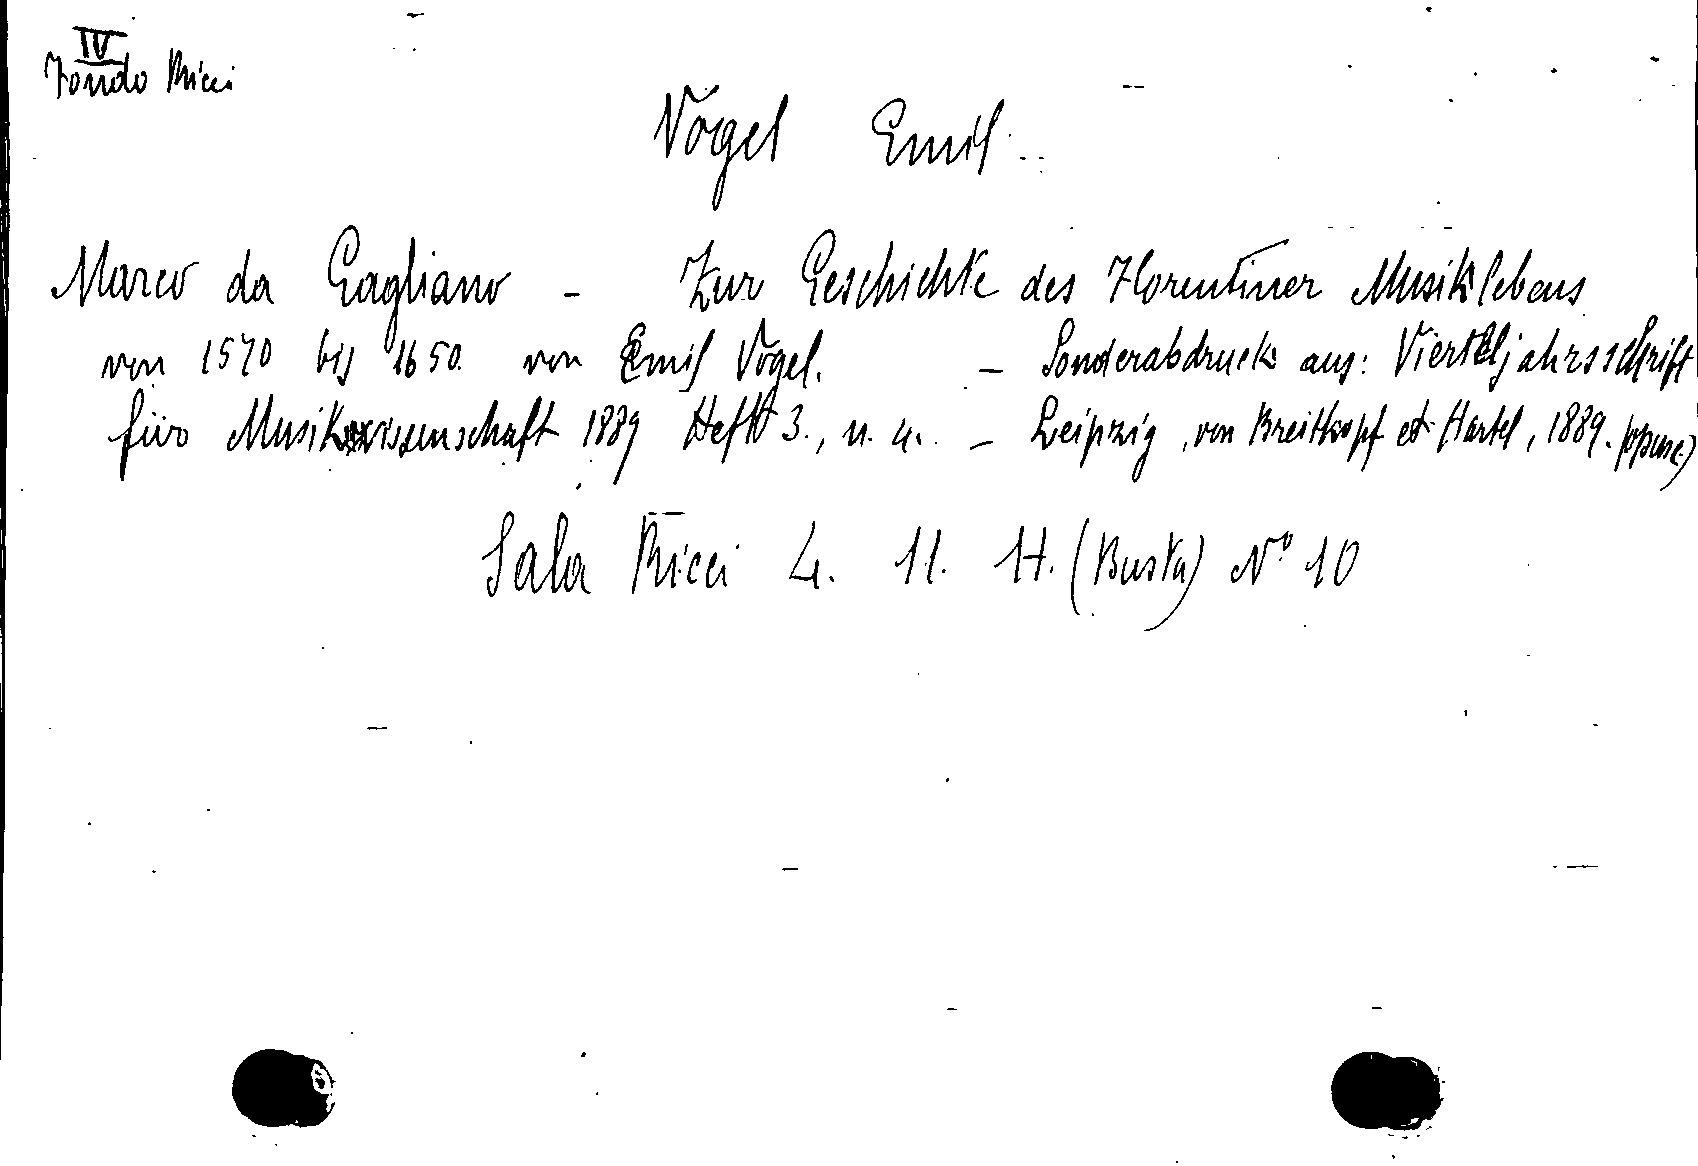 IV
Fondo Ricci
Vogel Emil
Marco da Gagliano - Zur Geschichte des Florentiner Musiklebens
von 1570 bis 1650. von Emil Vogel. - Sonderabdruck aus: Vierteljahrsschrift
für Musikwissenschaft 1889 Heft 3., u. 4. - Leipzig, von Breitkopf et Hartel, 1889. (opusc.)
Sala Ricci 4. 11. H. (Busta) N° 10